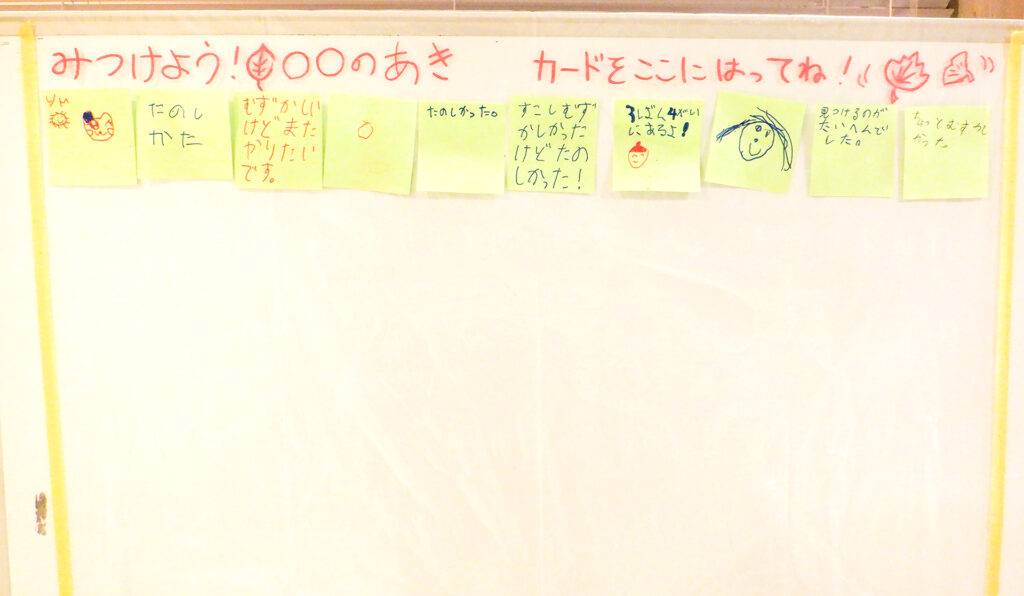 みつけよう!〇〇のあき
カードをここにはってね!
たのし
かた
むずかしい
けどまた
やりたい
です。
たのしかった。
すこしむず
かしかった
けどたの
しかった!
にあるよ!
見つけるのが
たいへんで
した。
ちょっとむすかし
かった。